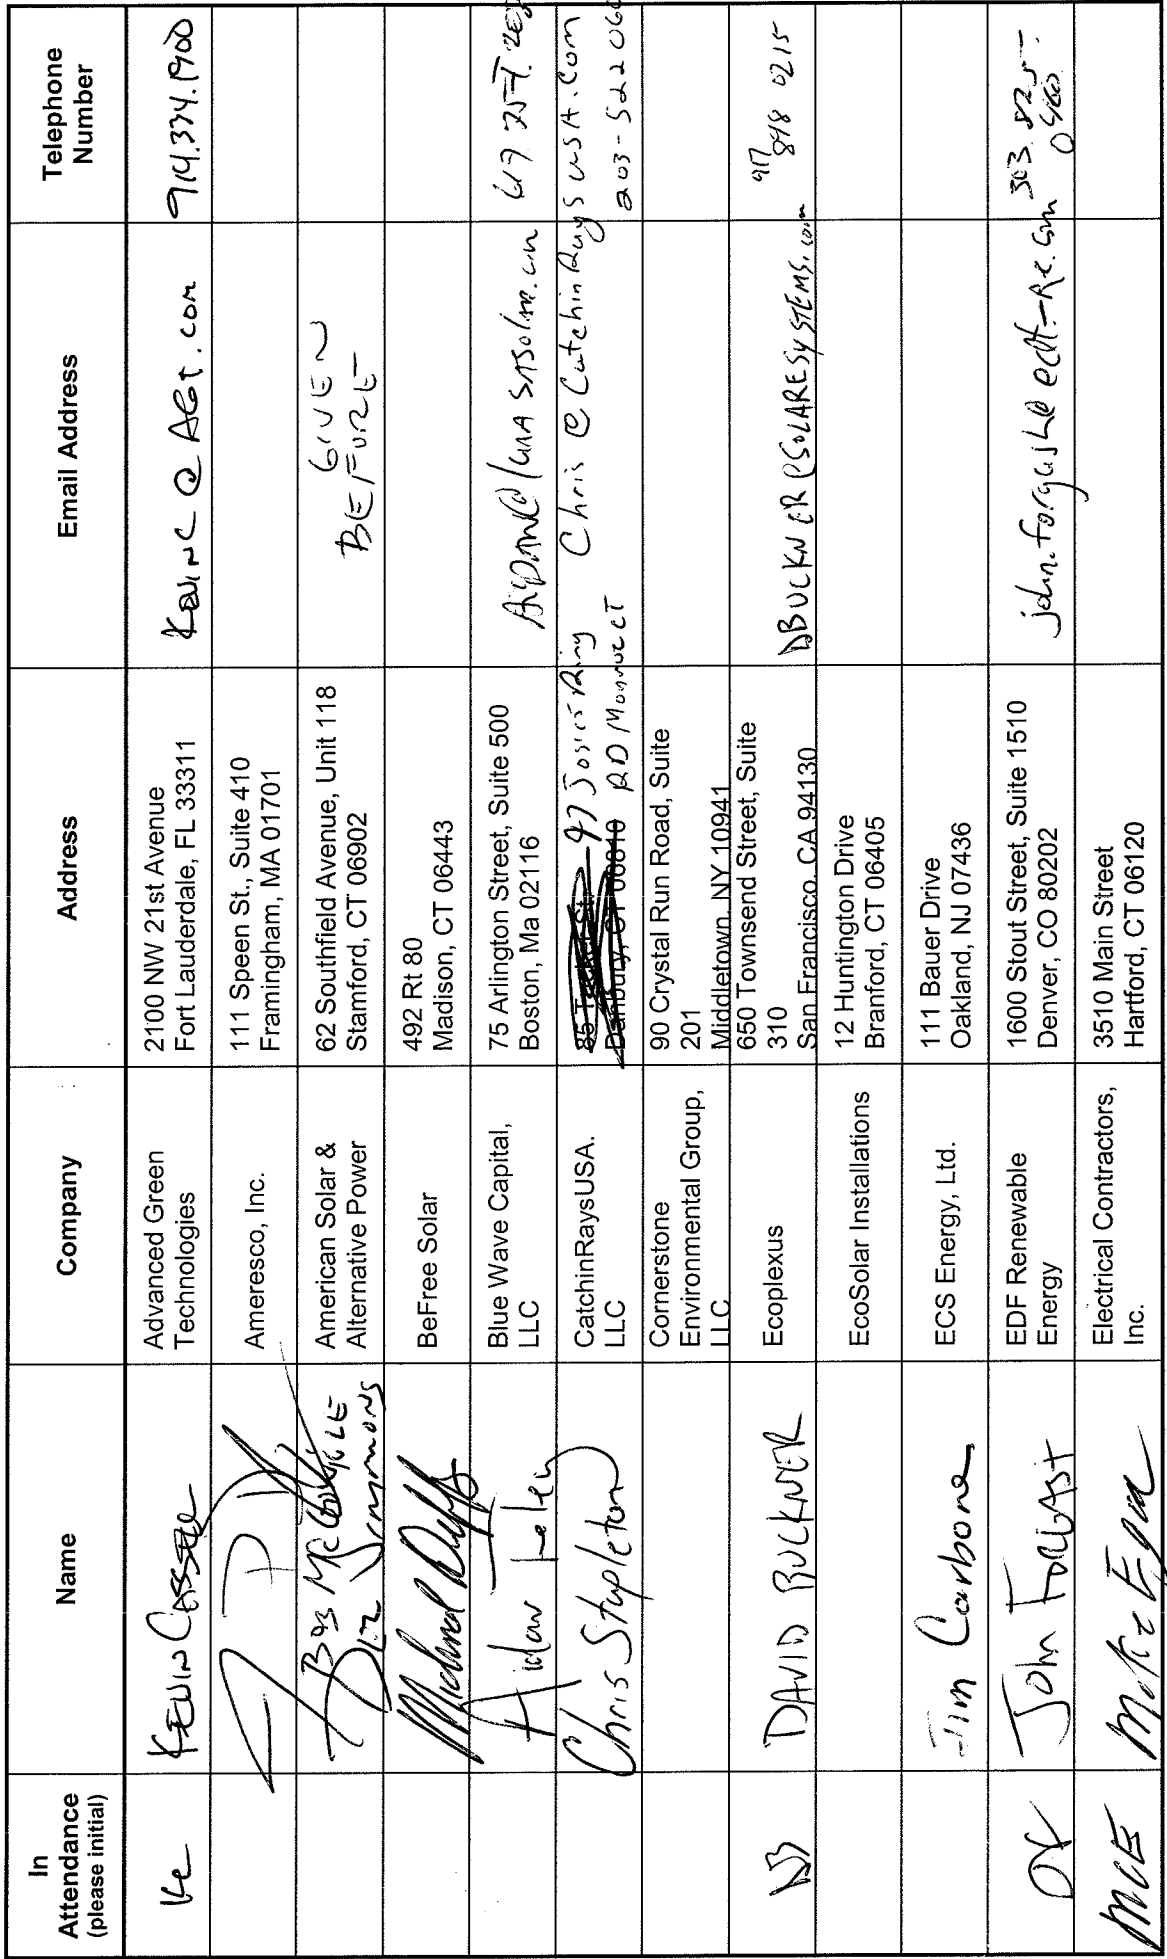 In
Attendance
(please initial)
Name
Company
Address
Email Address
Telephone
Number
Kc
KEVIN CASSTE
Advanced Green
Technologies
2100 NW 21st Avenue
Fort Lauderdale, FL 33311
KEVINC @ AGT.com
914.334.1900
Ameresco, Inc.
111 Speen St., Suite 410
Framingham, MA 01701
American Solar &
Alternative Power
62 Southfield Avenue, Unit 118
Stamford, CT 06902
GIVEN
BEFORE
BeFree Solar
492 Rt 80
Madison, CT 06443
Aidan Foley
Blue Wave Capital,
LLC
75 Arlington Street, Suite 500
Boston, Ma 02116
Chris Stapleton
CatchinRaysUSA.
LLC
47 Josies Ring
RD Monroe CT
Chris @ CatchinRaysUSA.com
203-522 060
Cornerstone
Environmental Group,
LLC
90 Crystal Run Road, Suite
201
Middletown, NY 10941
DB
DAVID BUCKNER
Ecoplexus
650 Townsend Street, Suite
310
San Francisco, CA 94130
DBUCKNER@SOLARESYSTEMS.com
917
848 0215
EcoSolar Installations
12 Huntington Drive
Branford, CT 06405
Tim Carbone
ECS Energy, Ltd.
111 Bauer Drive
Oakland, NJ 07436
John Forgash
EDF Renewable
Energy
1600 Stout Street, Suite 1510
Denver, CO 80202
john.forgash@edf-re.com
303.825-
0460
MCE
Mike Egan
Electrical Contractors,
Inc.
3510 Main Street
Hartford, CT 06120